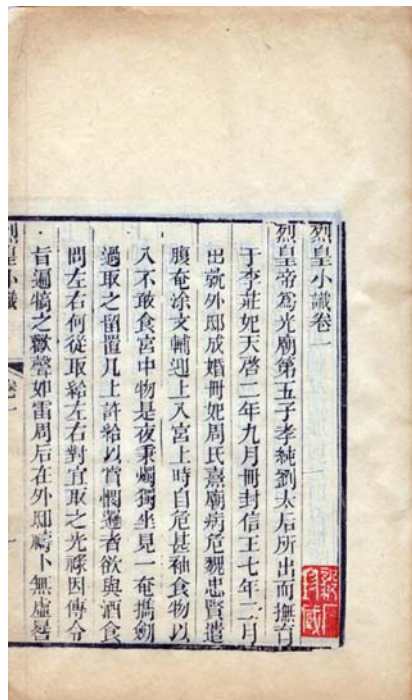 烈皇小識卷一
烈皇帝爲光廟第五子孝純劉太后所出而撫育
于李莊妃天啓二年九月冊封信王七年二月
出就外邸成婚冊妃周氏熹廟病危魏忠賢遣
腹奄涂文輔迎上入宮上時自危甚袖食物以
入不敢食宮中物是夜秉燭獨坐見一奄攜劍
過取之留置几上許給以賞憫邏者欲與酒食
問左右何從取給左右對宜取之光祿因傳令
旨遍犒之歡聲如雷周后在外邸禱卜無虛晷
烈皇小識
卷一
一